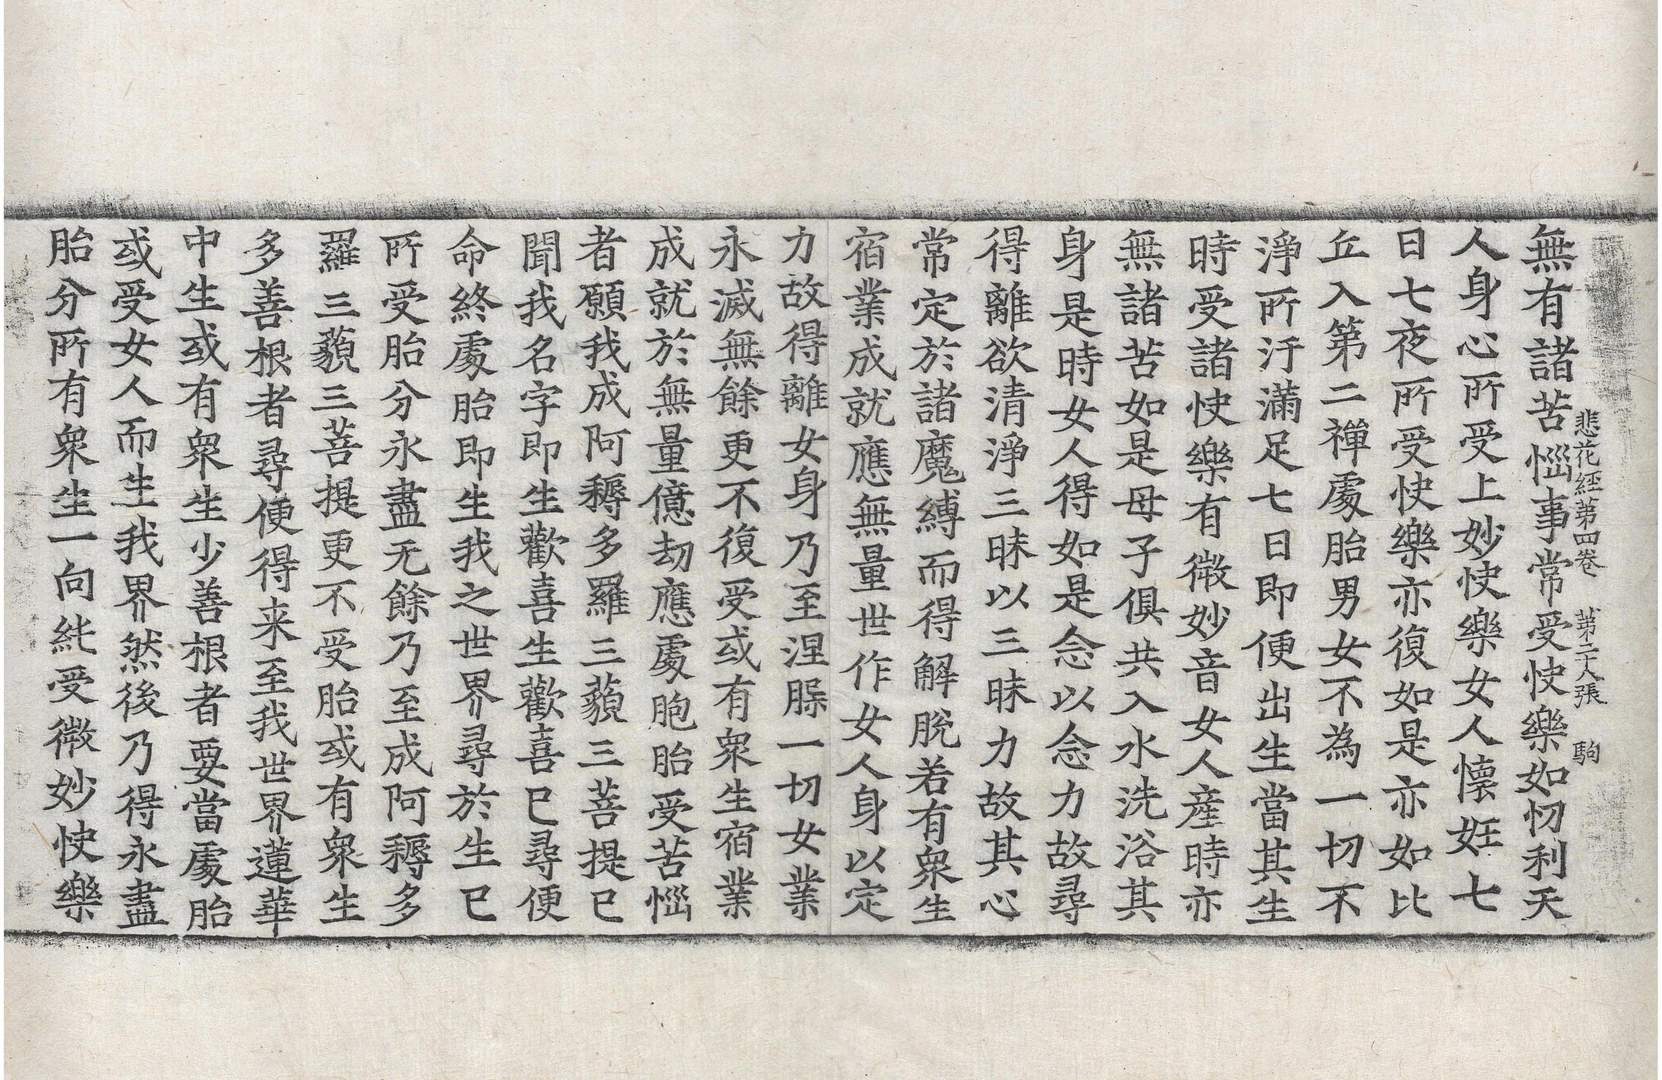 悲花經第四卷　第二六張　駒
無有諸苦惱事常受快樂如忉利天
人身心所受上妙快樂女人懷妊七
日七夜所受快樂亦復如是亦如比
丘入第二禪處胎男女不為一切不
淨所汙滿足七日即便出生當其生
時受諸快樂有微妙音女人産時亦
無諸苦如是母子俱共入水洗浴其
身是時女人得如是念以念力故尋
得離欲清淨三昧以三昧力故其心
常定於諸魔縛而得解脫若有衆生
宿業成就應無量世作女人身以定
力故得離女身乃至涅槃一切女業
永滅無餘更不復受或有衆生宿業
成就於無量億劫應處胞胎受苦惱
者願我成阿耨多羅三藐三菩提已
聞我名字即生歡喜生歡喜已尋便
命終處胎即生我之世界尋於生已
所受胎分永盡无餘乃至成阿耨多
羅三藐三菩提更不受胎或有衆生
多善根者尋便得来至我世界蓮華
中生或有衆生少善根者要當處胎
或受女人而生我界然後乃得永盡
胎分所有衆生一向純受微妙快樂